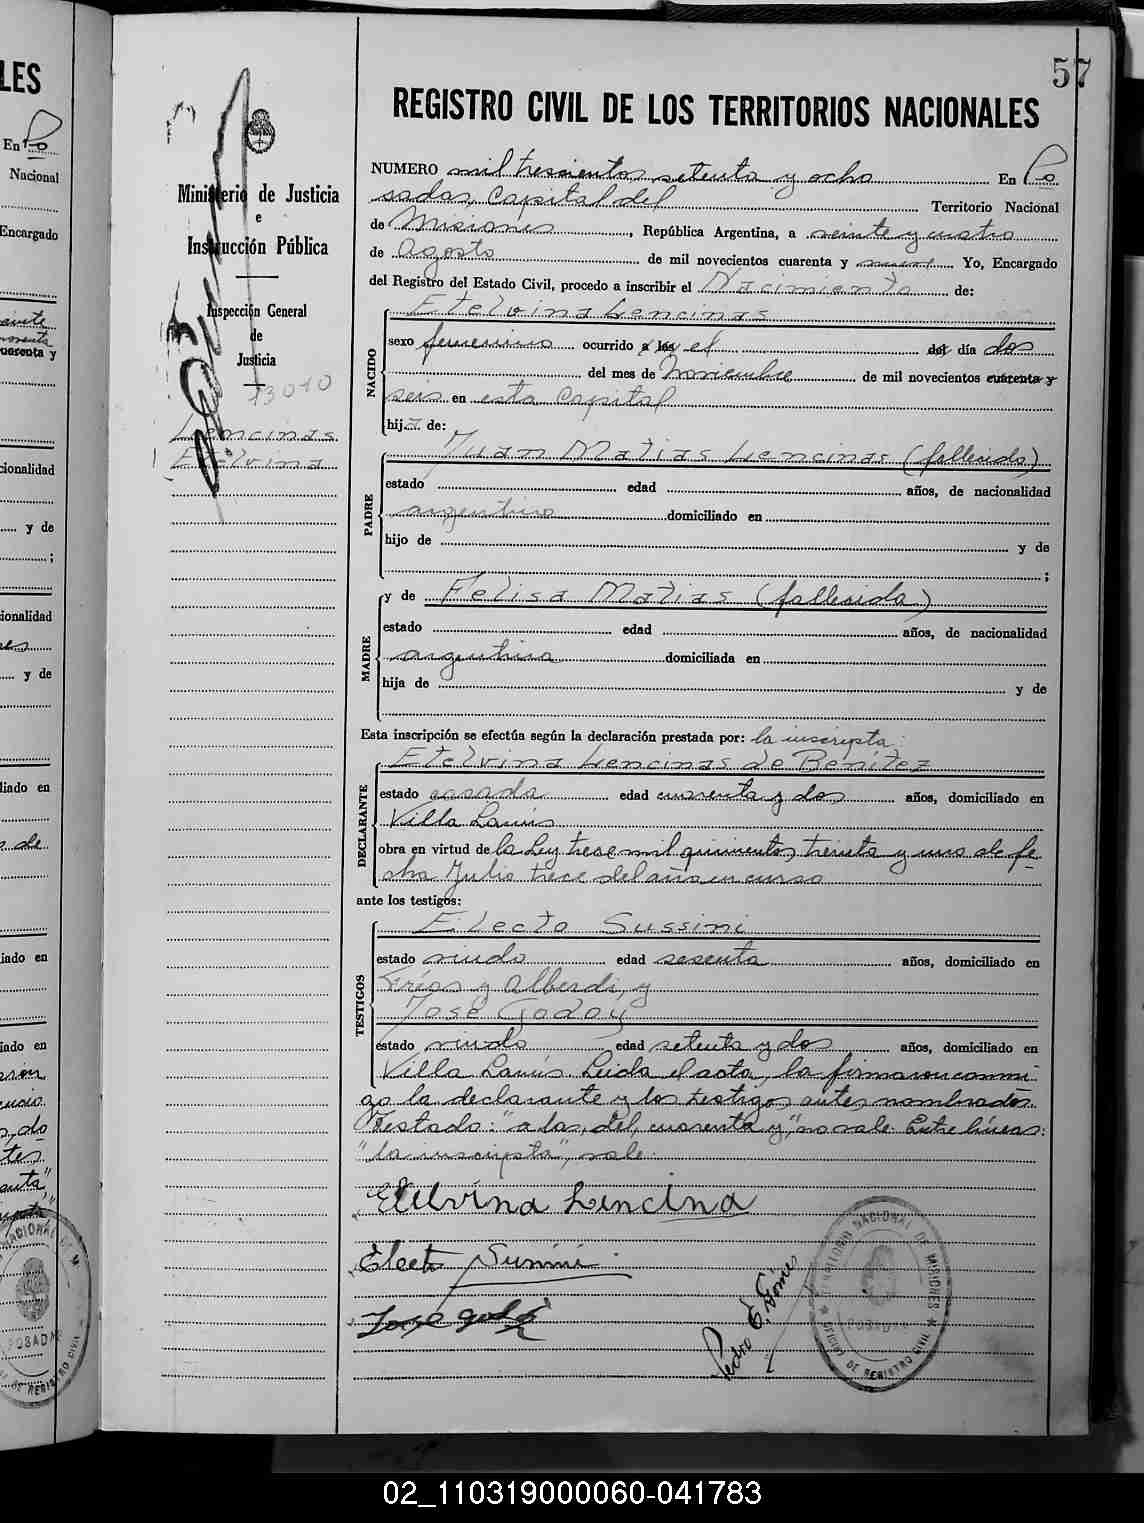 57
REGISTRO CIVIL DE LOS TERRITORIOS NACIONALES
Ministerio de Justicia
e
Instrucción Pública
Inspección General
de
Justicia
13010
Lencinas
Etelvina
NUMERO mil trescientos setenta y ocho En Po
sadas, Capital del Territorio Nacional
de Misiones, República Argentina, a veinte y cuatro
de Agosto de mil novecientos cuarenta y nueve. Yo, Encargado
del Registro del Estado Civil, procedo a inscribir el Nacimiento de:
NACIDO
Etelvina Lencinas
sexo femenino ocurrido a las el del día dos
del mes de Noviembre de mil novecientos cuarenta y
seis en esta Capital
hija de:
PADRE
Juan Matias Lencinas (fallecido)
estado edad años, de nacionalidad
argentino domiciliado en
hijo de y de
;
MADRE
y de Felisa Matias (fallecida)
estado edad años, de nacionalidad
argentina domiciliada en
hija de y de
Esta inscripción se efectúa según la declaración prestada por: la inscripta:
DECLARANTE
Etelvina Lencinas de Benítez
estado casada edad cuarenta y dos años, domiciliado en
Villa Lanús
obra en virtud de la Ley trece mil quinientos treinta y uno de fe-
cha Julio trece del año en curso
ante los testigos:
TESTIGOS
Electo Sussini
estado viudo edad sesenta años, domiciliado en
Frías y Alberdi, y
José Godoy
estado viudo edad setenta y dos años, domiciliado en
Villa Lanús. Leída el acta, la firmaron conmi-
go la declarante y los testigos antes nombrados.
Testado: "a las, del, cuarenta y", no vale. Entre líneas:
"la inscripta", vale.
Etelvina Lencina
Electo Sussini
Jose godoy
Pedro E. Gómez
TERRITORIO NACIONAL DE MISIONES
POSADAS
OFICINA DE REGISTRO CIVIL
LES
En Po
Nacional
Encargado
cuarenta y
cionalidad
y de
;
cionalidad
y de
liado en
liado en
liado en
02_110319000060-041783